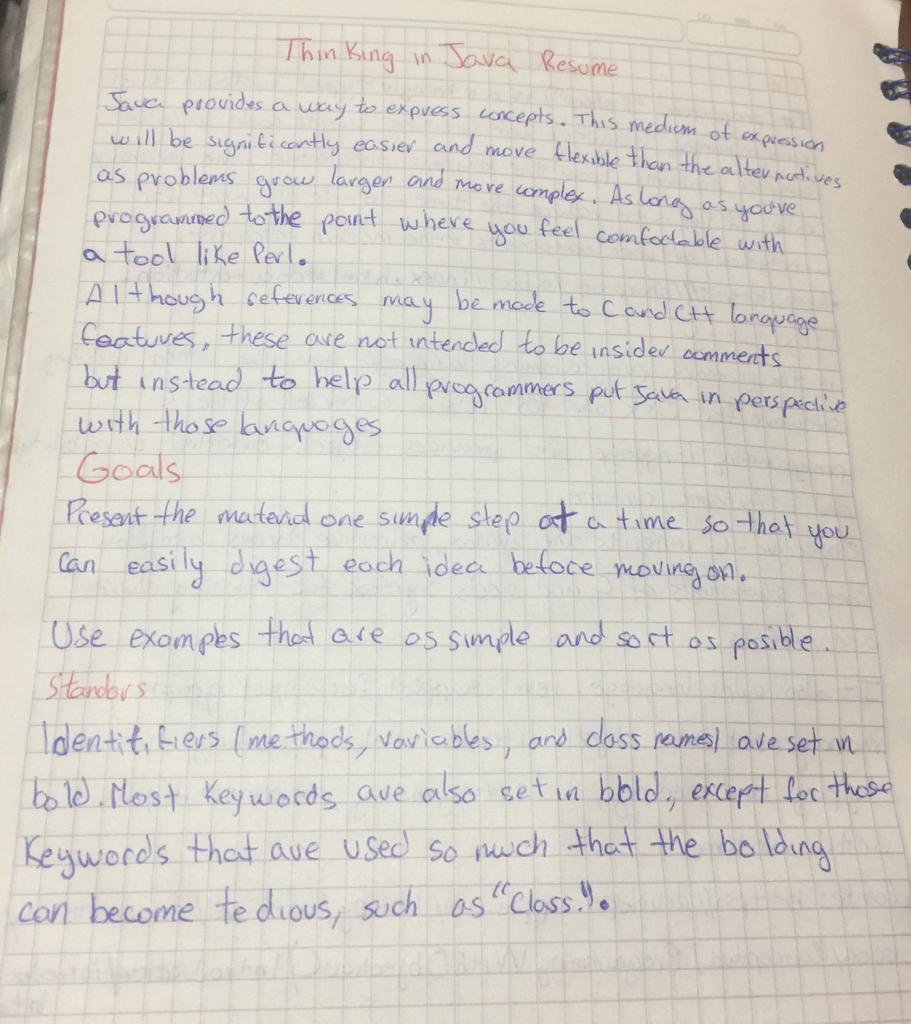 Thinking in Java Resume
Java provides a way to express concepts. This medium of expression
will be significantly easier and more flexible than the alternatives
as problems grow larger and more complex. As long as you've
programmed to the point where you feel comfoctable with
a tool like Perl.
Although references may be made to C and C++ language
features, these are not intended to be insider comments
but instead to help all programmers put Java in perspective
with those languages
Goals
Present the material one simple step at a time so that you
can easily digest each idea before moving on.
Use examples that are as simple and sort as posible.
Standars
Identitifiers (methods, variables, and class names) are set in
bold. Most Keywords are also set in bold, except for those
Keywords that are used so much that the bolding
can become tedious, such as "Class.".